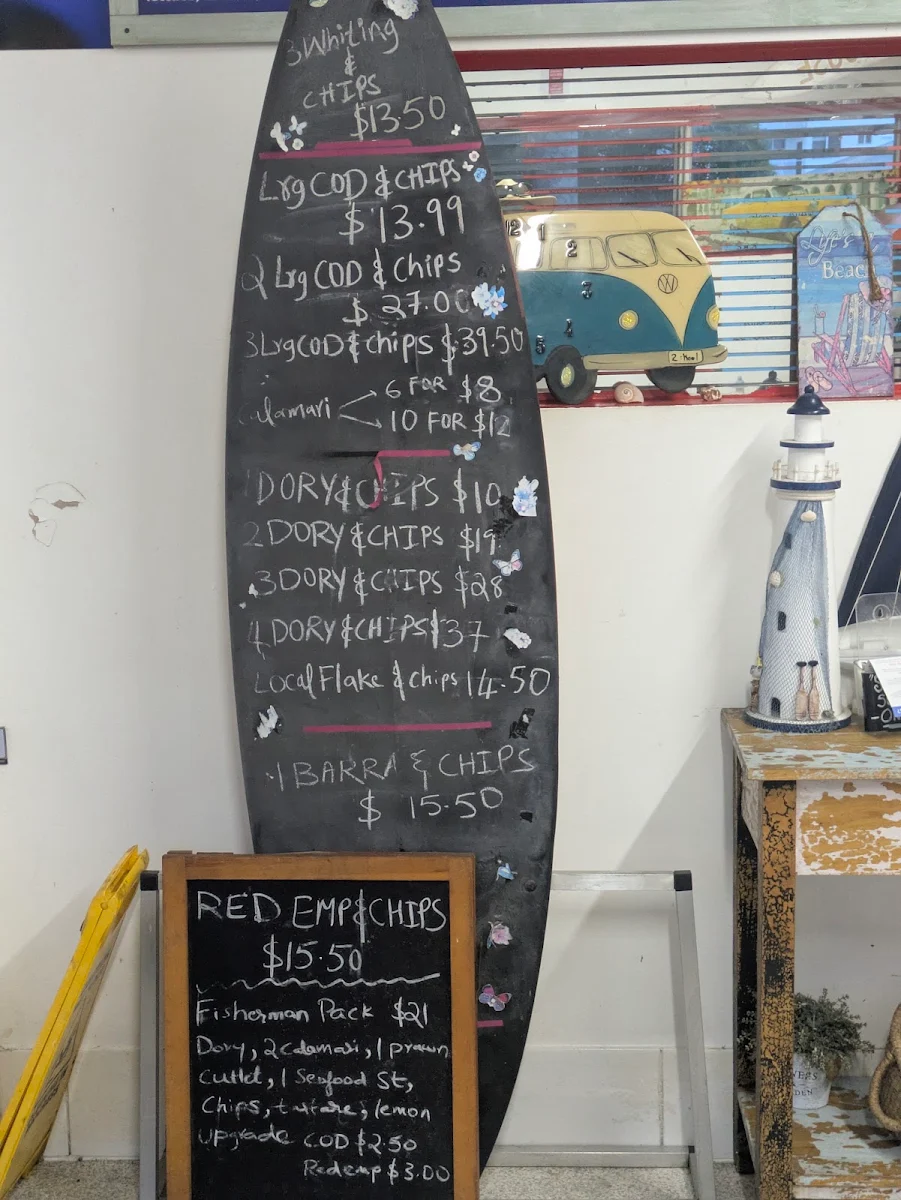 3 Whiting
&
CHIPS
$13.50
Lrg COD & CHIPS
$13.99
2 Lrg COD & Chips
$27.00
3 Lrg COD & chips $39.50
Calamari 6 FOR $8
10 FOR $12
1 DORY & CHIPS $10
2 DORY & CHIPS $19
3 DORY & CHIPS $28
4 DORY & CHIPS $37
Local Flake & chips 14.50
1 BARRA & CHIPS
$ 15.50
RED EMP & CHIPS
$15.50
Fisherman Pack $21
Dory, 2 calamari, 1 prawn
Cutlet, 1 Seafood St,
Chips, tartare, lemon
upgrade COD $2.50
Red emp $3.00
12 1 2
3
5 4
VW
Life's
Beac